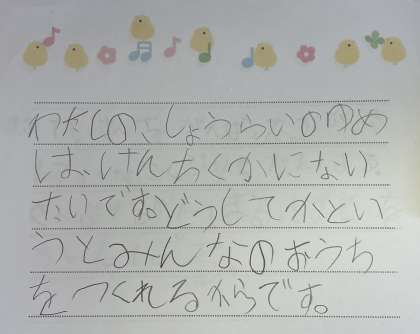 わたしの、しょうらいのゆめ
は、けんちくかにない
たいです。どうしてかとい
うとみんなのおうち
をつくれるからです。